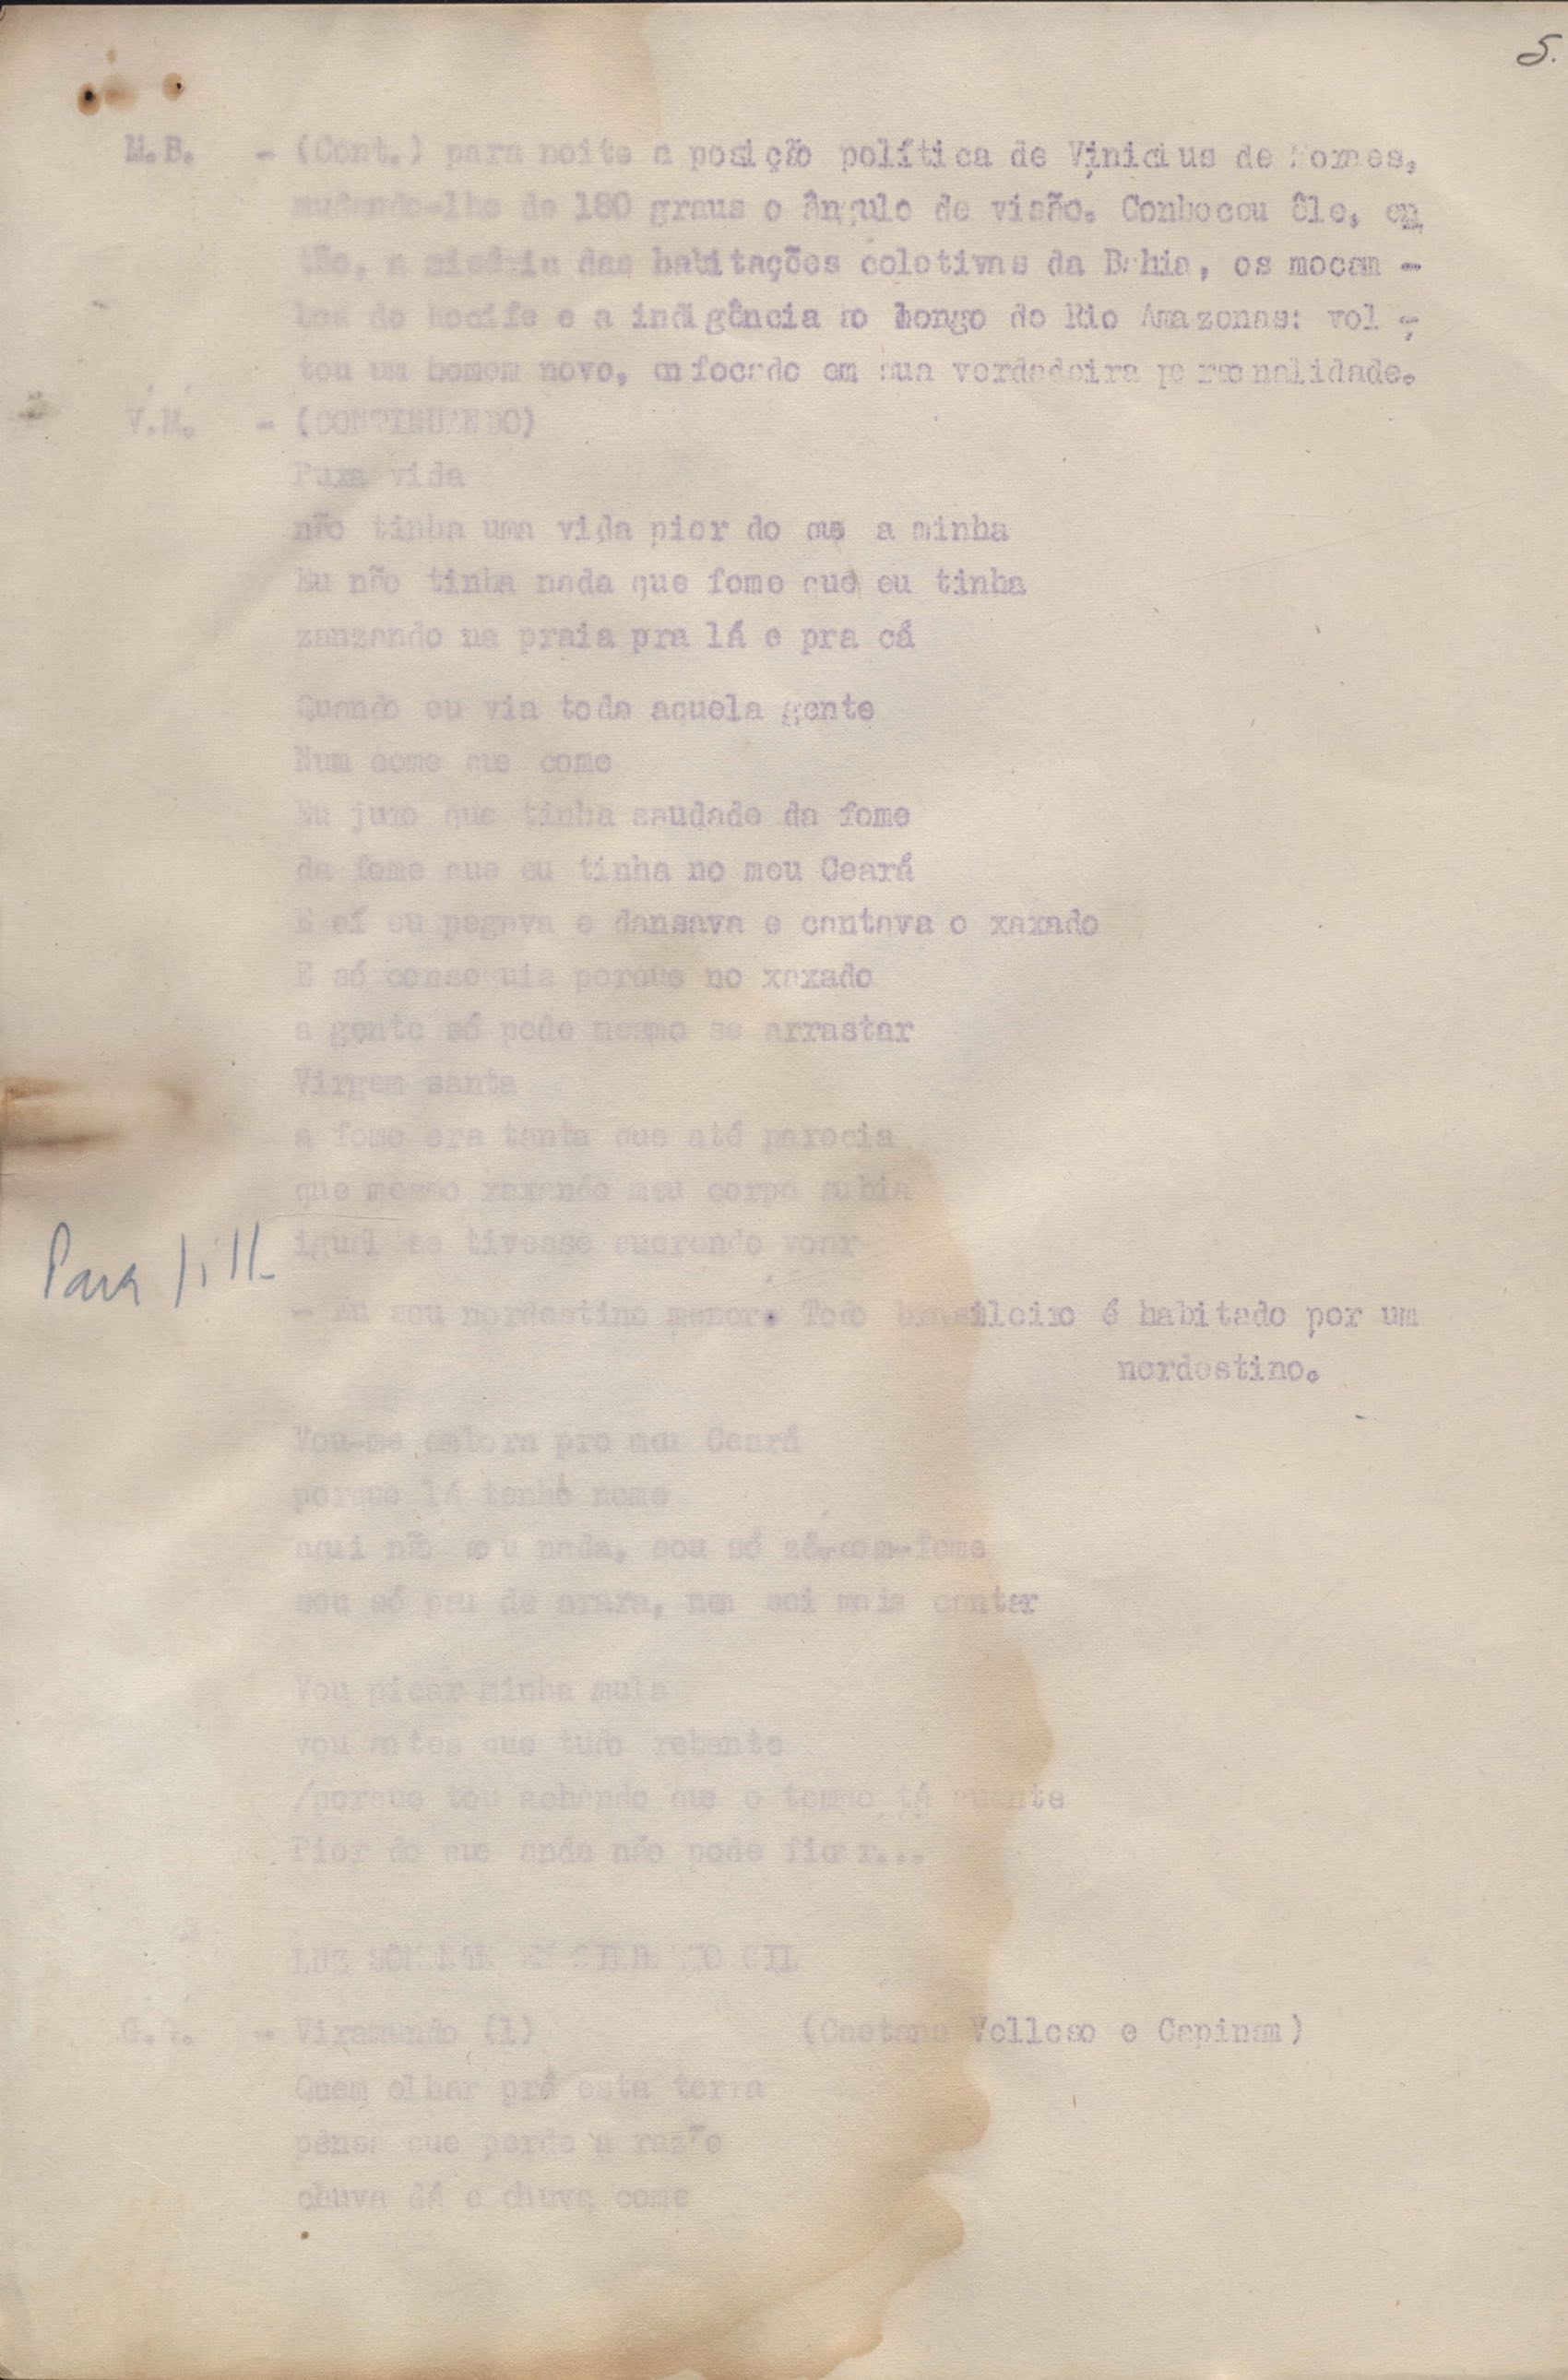 5.
M.B. - (Cont.) para noite a posição política de Vinicius de Moraes,
mudando-lhe de 180 graus o ângulo de visão. Conheceu êle, en
tão, a miséria das habitações coletivas da Bahia, os mocam -
bos do Recife e a indigência ao longo do Rio Amazonas: vol -
tou um homem novo, enfocado em sua verdadeira personalidade.
V.M. - (CONTINUENDO)
Puxa vida
não tinha uma vida pior do que a minha
Eu não tinha nada que fome que eu tinha
zanzando na praia pra lá e pra cá
Quando eu via toda aquela gente
Num come que come
Eu juro que tinha saudade da fome
da fome que eu tinha no meu Ceará
E aí eu pegava e dansava e cantava o xaxado
E só conseguia porque no xaxado
a gente só pode mesmo se arrastar
Virgem santa
a fome era tanta que até parecia
que mesmo xaxando meu corpo subia
igual se tivesse querendo voar
Para
- Eu sou nordestino menor. Todo brasileiro é habitado por um
nordestino.
Vou-me embora pro meu Ceará
porque lá tenho nome
aqui não sou nada, sou só zé-com-fome
sou só pau de arara, nem sei mais cantar
Vou picar minha mula
vou antes que tudo rebente
/porque tou achando que o tempo tá quente
Pior do que anda não pode ficar...
LUZ SÔMENTE EM GILBERTO GIL
G.G. - Viramundo (1) (Caetano Velloso e Capinam)
Quem olhar prá esta terra
pensa que perde a razão
chuva dá e chuva come